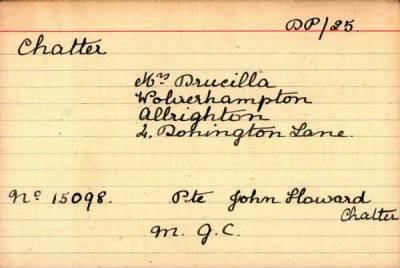 DP/25.
Chatter
Mrs Drucilla
Wolverhampton
Albrighton
4, Donington Lane.
No 15098. Pte John Howard
Chatter
M. G. C.